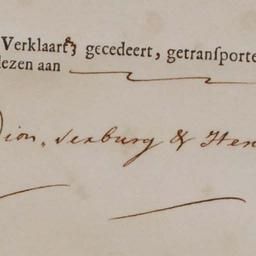 Verklaart, gecedeert, getransporte
lezen aan
Dion. Sexburg & Hen